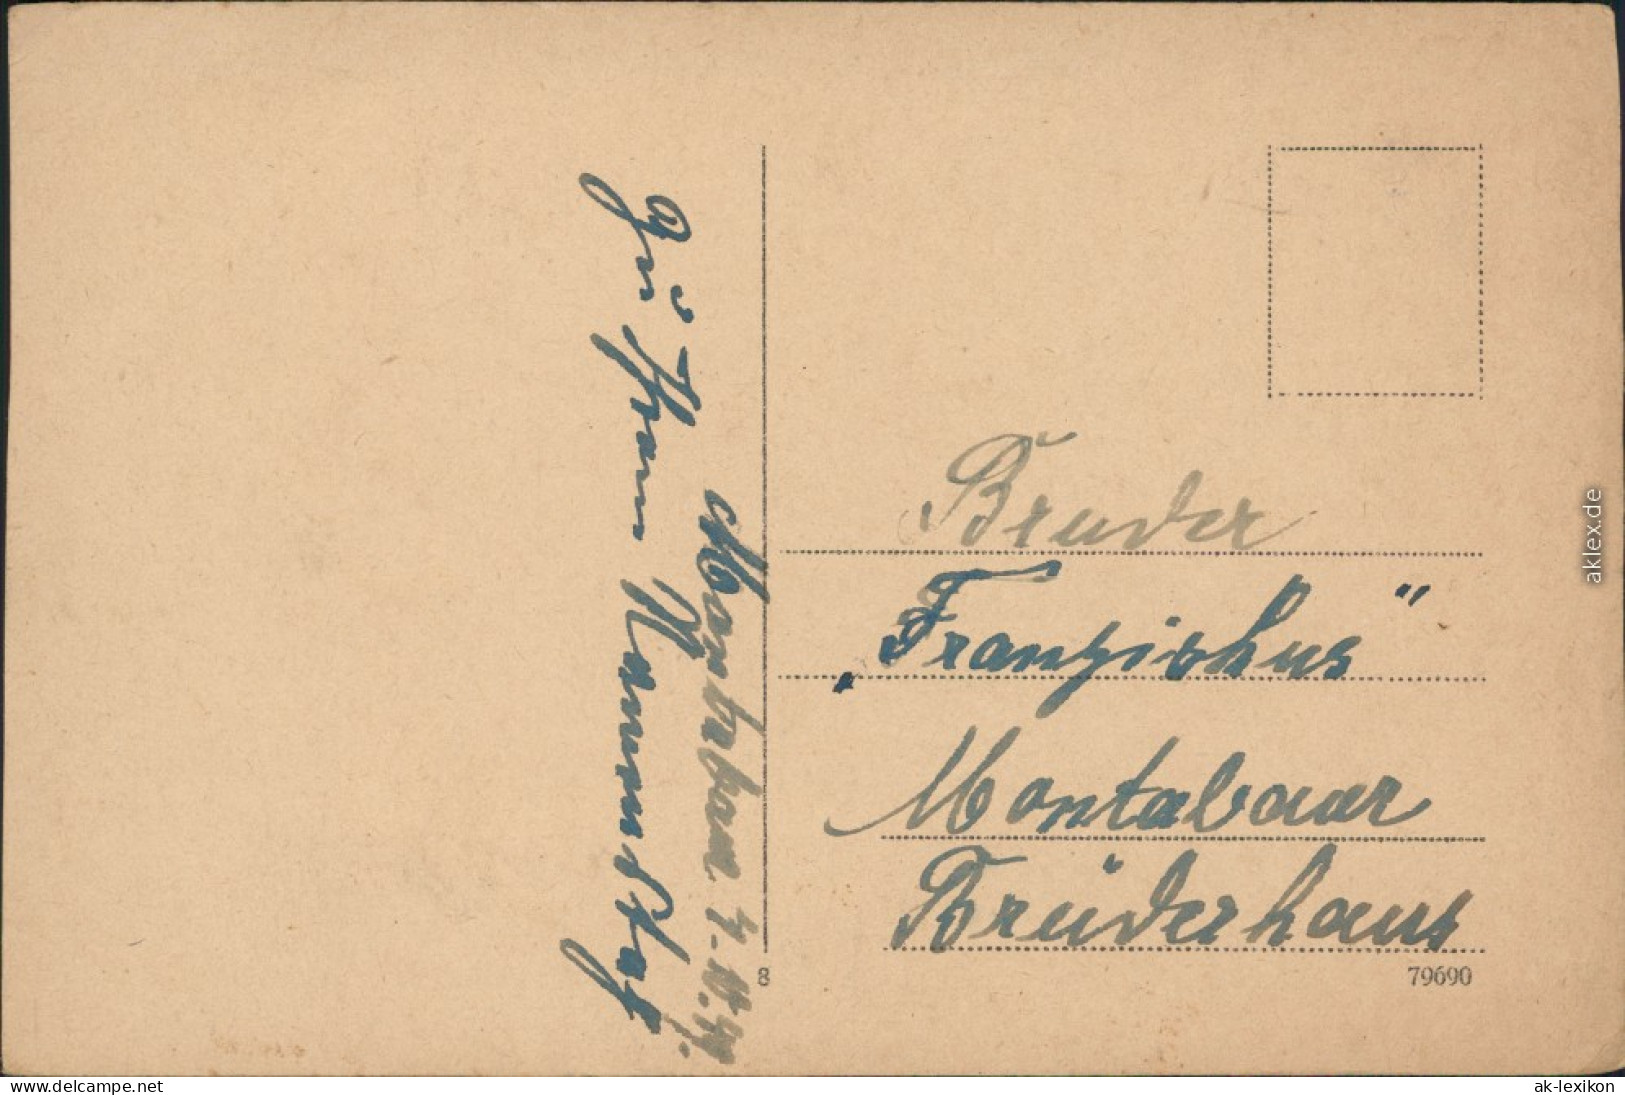 Zum Namenstag
Montabaur
Bruder
„Franziskus"
Montabaur
Brüderhaus
8
79690
aklex.de
www.delcampe.net
ak-lexikon